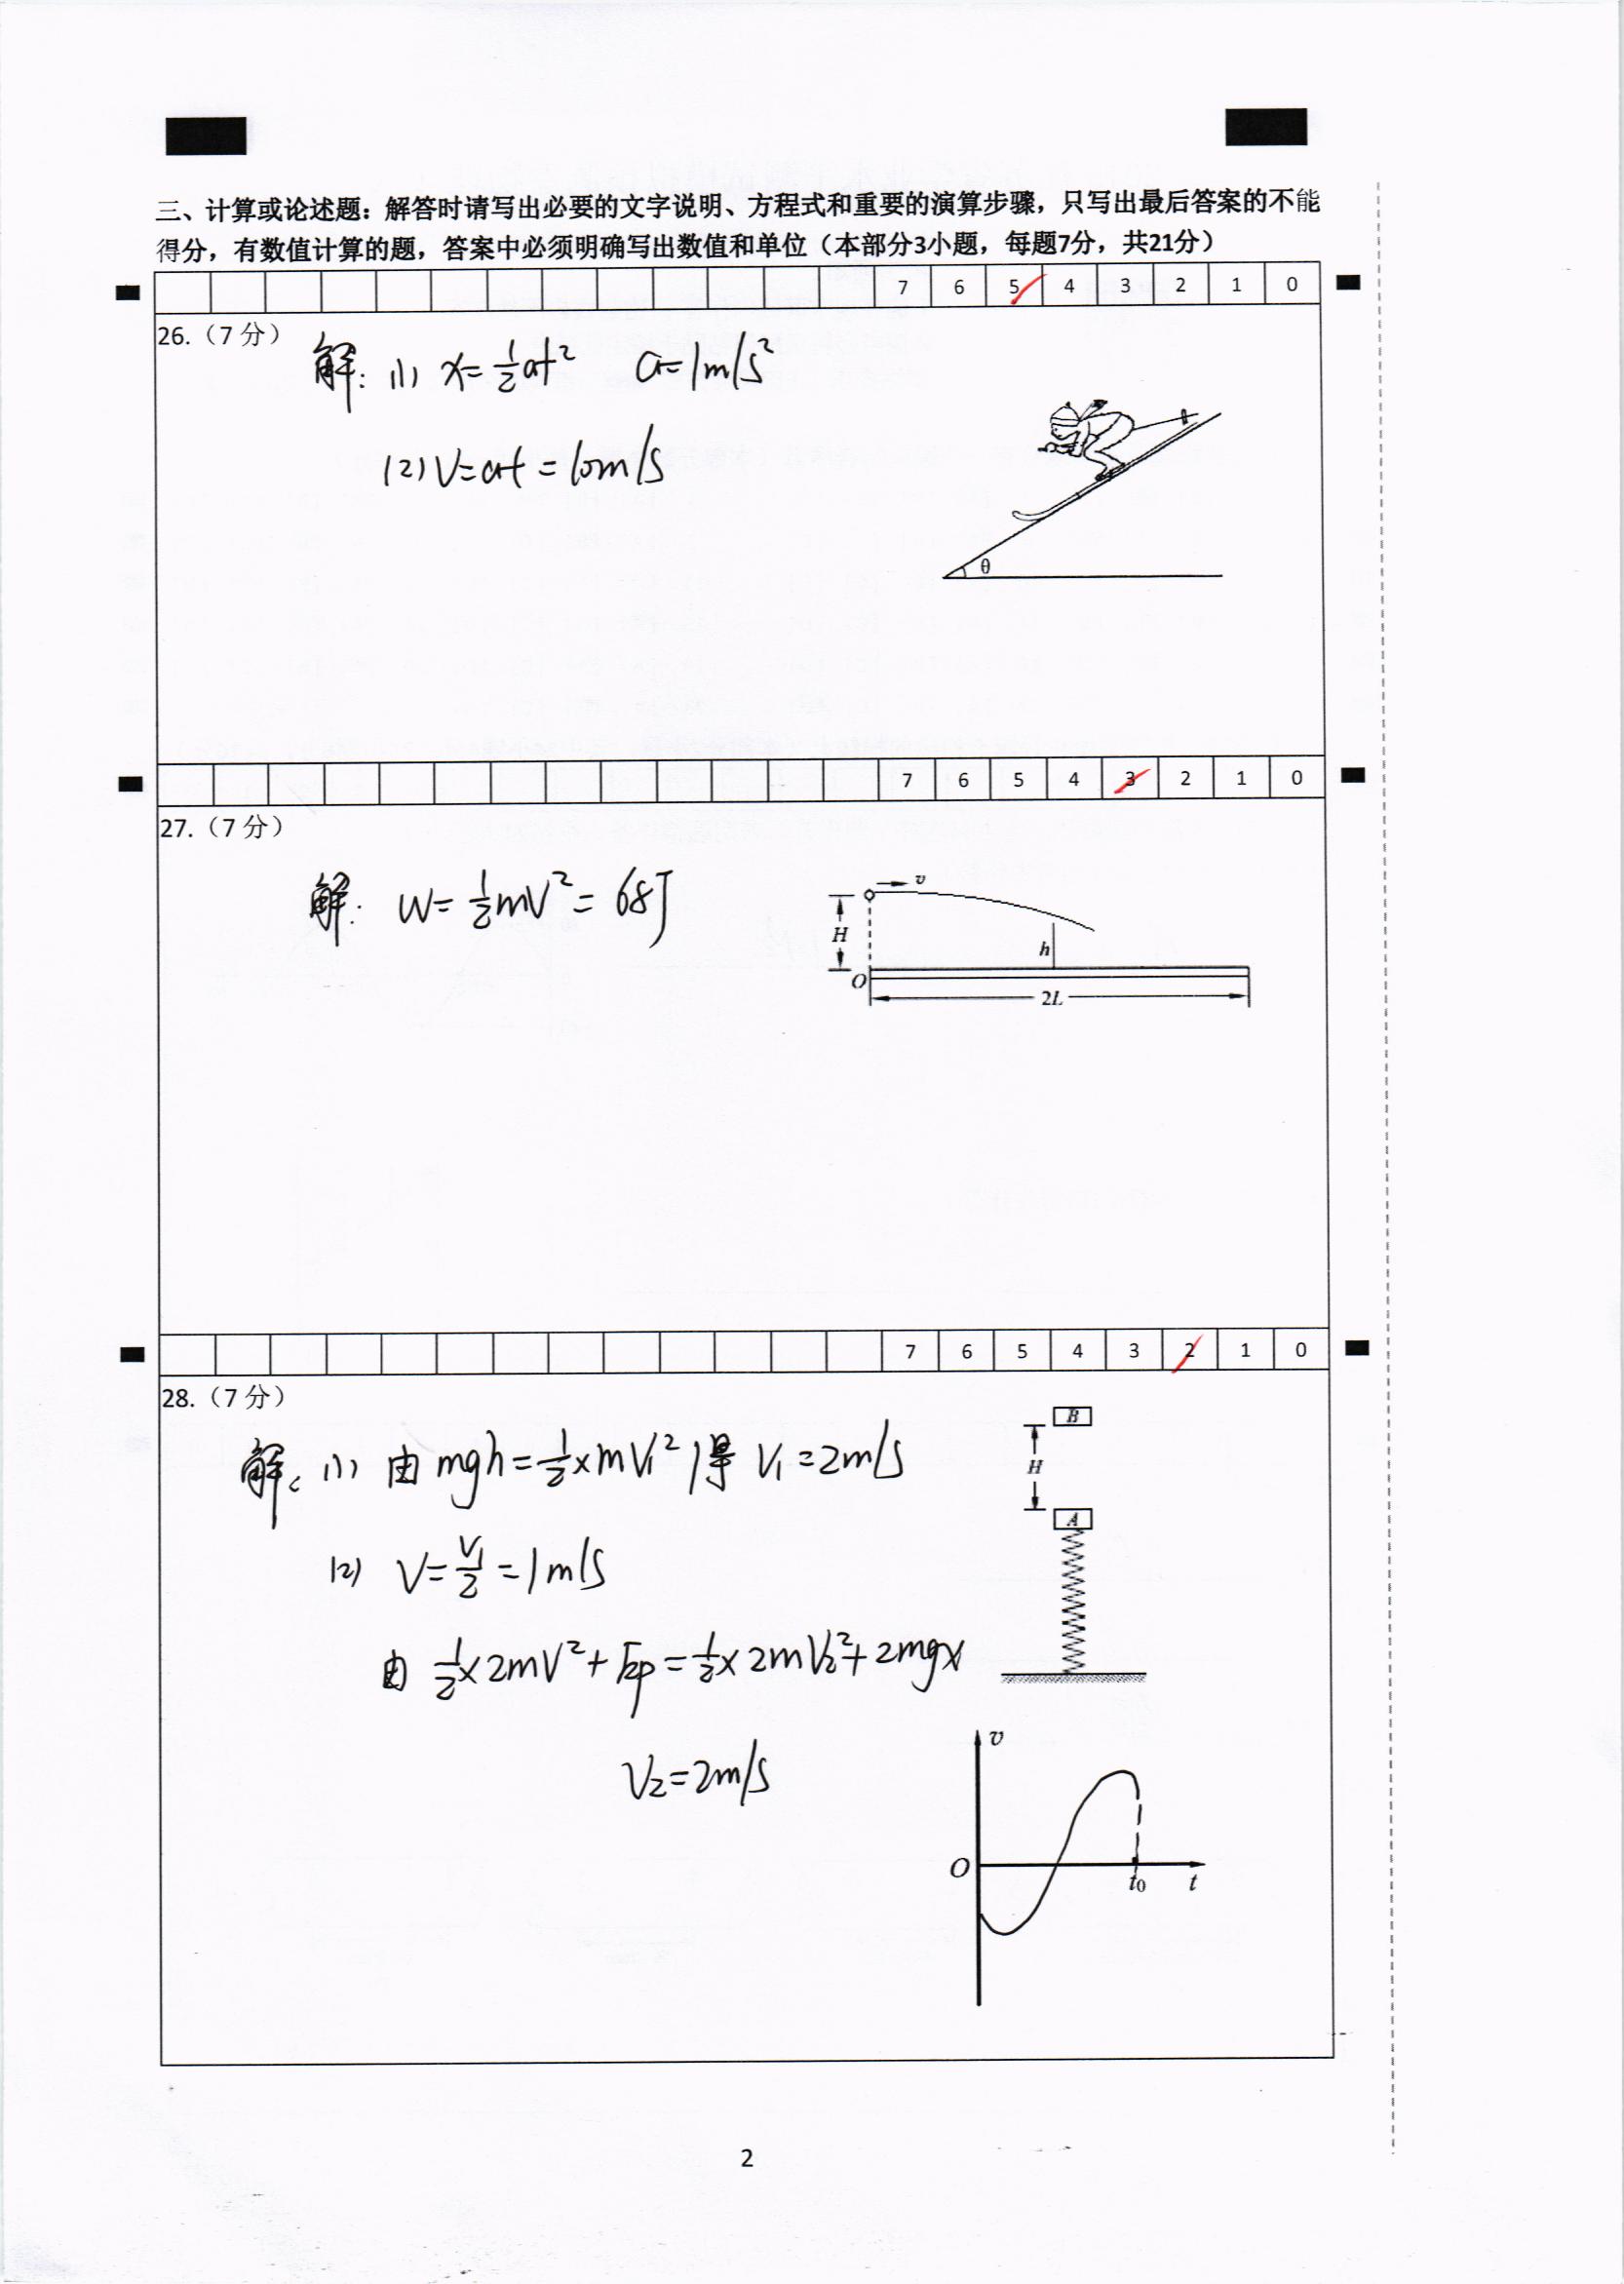 三、计算或论述题：解答时请写出必要的文字说明、方程式和重要的演算步骤，只写出最后答案的不能
得分，有数值计算的题，答案中必须明确写出数值和单位（本部分3小题，每题7分，共21分）
7 6 5 4 3 2 1 0
26.（7分）
解：(1) x=½at² a=1m/s²
(2) V=at=10m/s
θ
7 6 5 4 3 2 1 0
27.（7分）
解：W=½mV²=68J
v
H
h
O
2L
7 6 5 4 3 2 1 0
28.（7分）
解：(1) 由mgh=½×mV₁²得 V₁=2m/s
(2) V=V₁/2=1m/s
由 ½×2mV²+Ep=½×2mV₂²+2mgx
V₂=2m/s
B
H
A
v
O
t₀
t
2